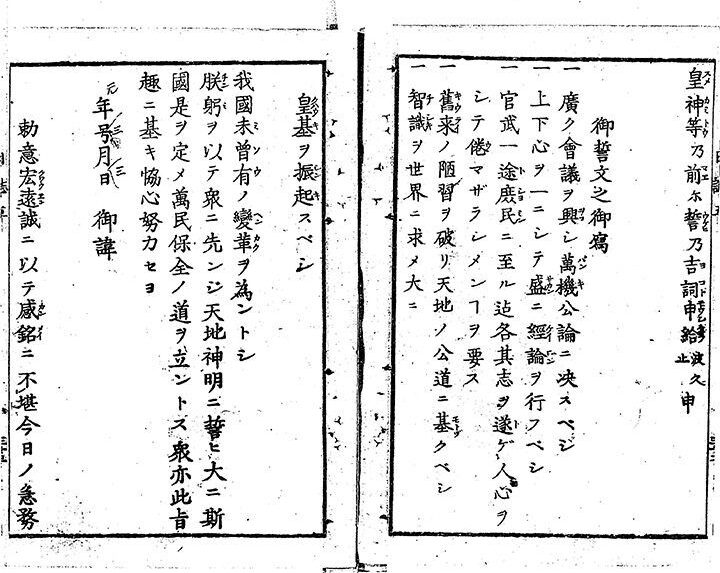 皇神等乃前尓誓乃吉詞申給止波久申
御誓文之御寫
一 廣ク會議ヲ興シ萬機公論ニ决スベシ
一 上下心ヲ一ニシテ盛ニ經論ヲ行フベシ
一 官武一途庶民ニ至ル迠各其志ヲ遂ゲ人心ヲ
シテ倦マザラシメンヿヲ要ス
一 舊来ノ陋習ヲ破リ天地ノ公道ニ基クベシ
一 智識ヲ世界ニ求メ大ニ
皇基ヲ振起スベシ
我國未曾有ノ變革ヲ為ントシ
朕躬ヲ以テ衆ニ先ンジ天地神明ニ誓ヒ大ニ斯
國是ヲ定メ萬民保全ノ道ヲ立ントス衆亦此旨
趣ニ基キ恊心努力セヨ
年号月日 御諱
勅意宏遠誠ニ以テ感銘ニ不堪今日ノ急務